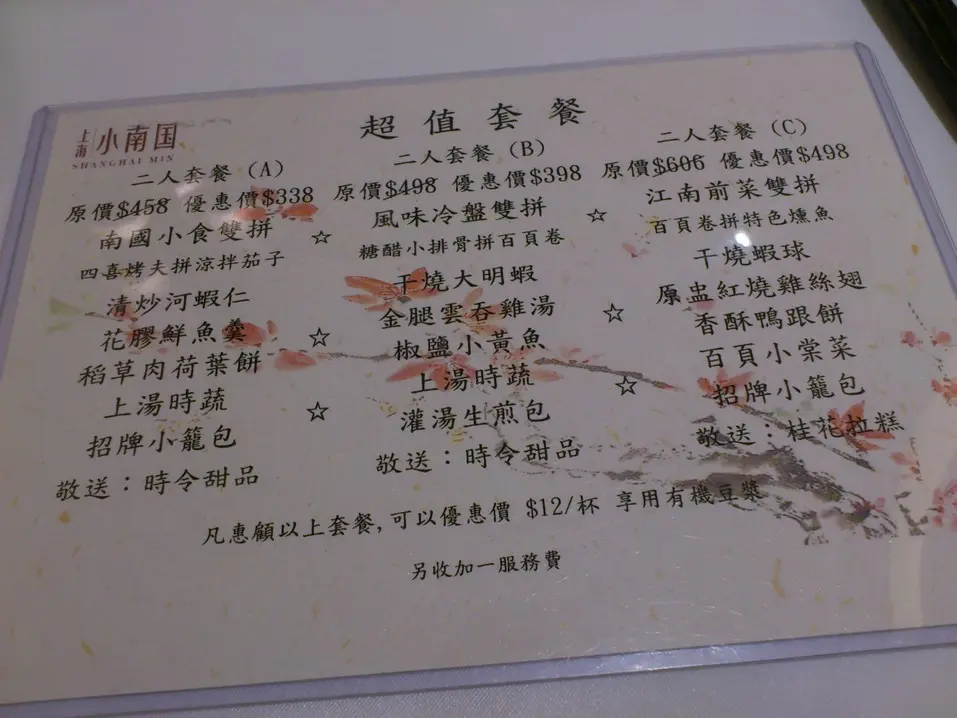 上海 小南国
SHANGHAI MIN
超值套餐
二人套餐 (A)
原價$458 優惠價$338
南國小食雙拼
四喜烤夫拼涼拌茄子
清炒河蝦仁
花膠鮮魚羹
稻草肉荷葉餅
上湯時蔬
招牌小籠包
敬送：時令甜品
二人套餐 (B)
原價$498 優惠價$398
風味冷盤雙拼
糖醋小排骨拼百頁卷
干燒大明蝦
金腿雲吞雞湯
椒鹽小黃魚
上湯時蔬
灌湯生煎包
敬送：時令甜品
二人套餐 (C)
原價$606 優惠價$498
江南前菜雙拼
百頁卷拼特色燻魚
干燒蝦球
原盅紅燒雞絲翅
香酥鴨跟餅
百頁小棠菜
招牌小籠包
敬送：桂花拉糕
☆
☆
☆
☆
☆
☆
凡惠顧以上套餐,可以優惠價 $12/杯 享用有機豆漿
另收加一服務費